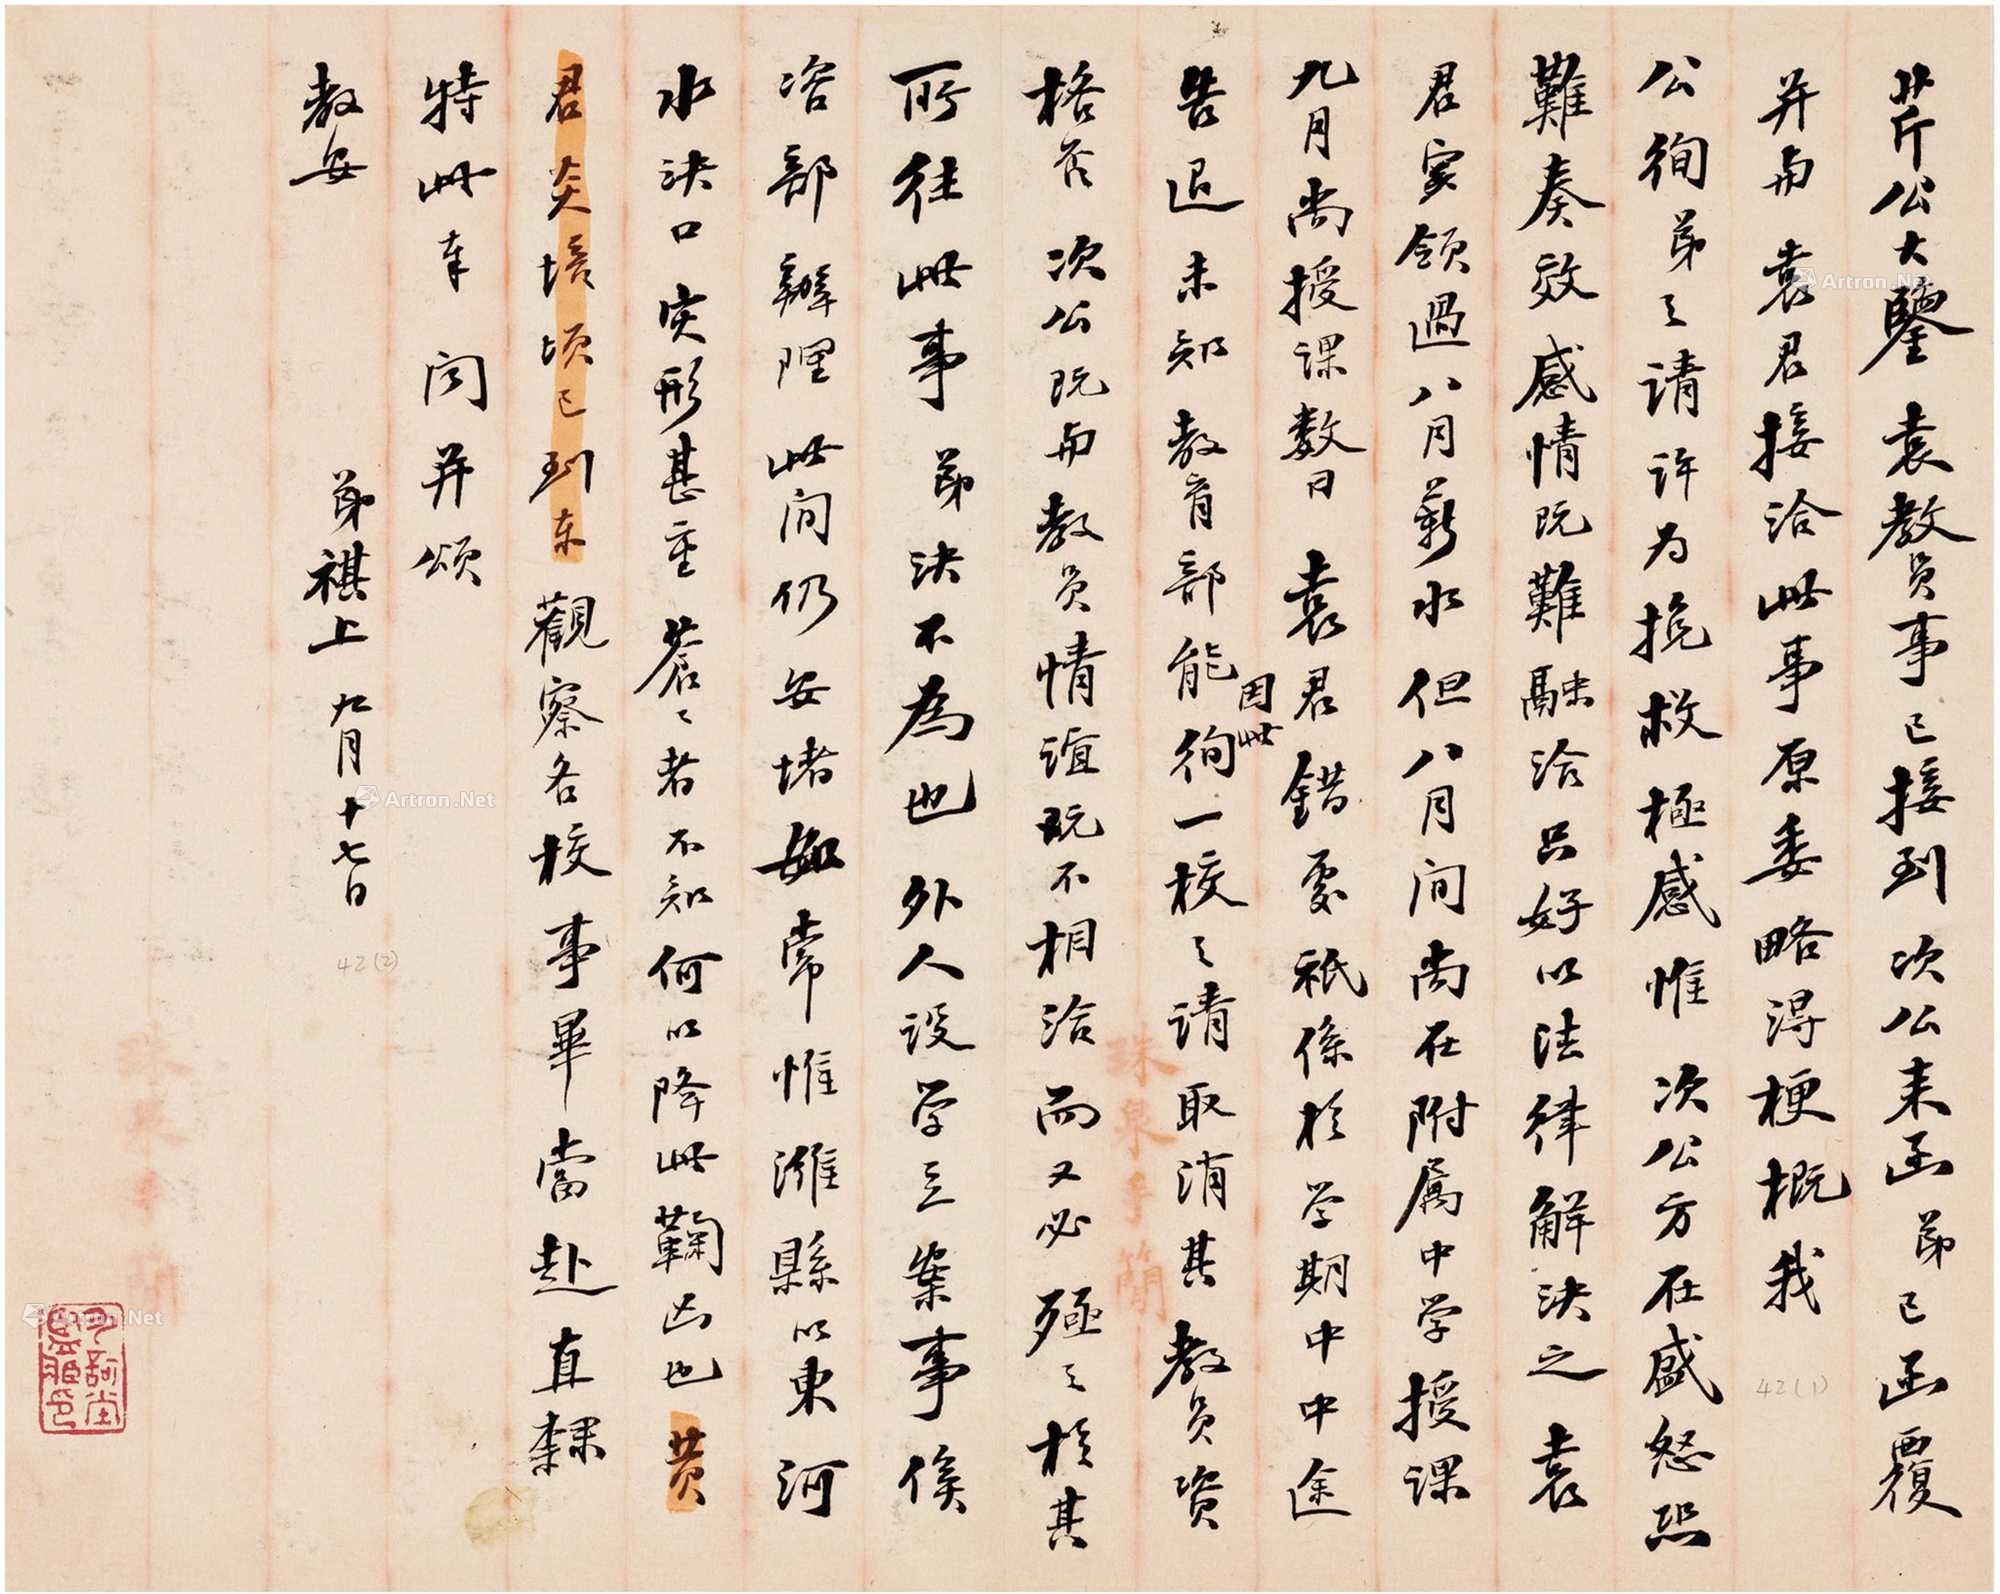 芹公大鑒 袁教员事已接到 次公来函 弟已函覆
并与 袁君接洽此事原委略得梗概 我
公徇弟之请许为挽救极感惟 次公方在盛怒恐
難奏效感情既難融洽只好以法律解决之 袁
君实领過八月薪水但八月间尚在附属中学授课
九月尚授课数日 袁君錯处祇係於学期中中途
告退未知教育部能因此徇一校之请取消其教员资
格否 次公既与教员情谊既不相洽而又必殛之於其
所往此事 弟决不為也 外人设学立案事俟
咨部辦理 此间仍安堵如常惟濰縣以東河
水决口灾形甚重 蒼々者不知何以降此鞠凶也 黄
君炎培顷已到东觀察各校事畢當赴直隸
特此奉闻并颂
教安
弟祺上 九月十七日
42(1)
42(2)
珠泉手簡
珠泉手簡
Artron.Net
Artron.Net
Artron.Net